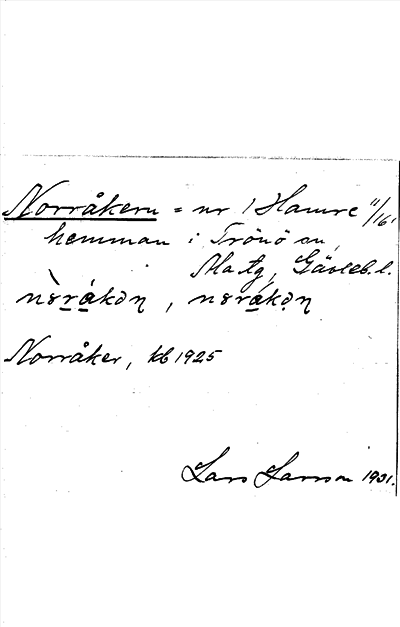 Norråkern = nr 1 Hamre 11/16,
hemman i Trönö sn,
Ma tg, Gävleb. l.
Norråker, kb 1925
Lars Larsson 1931.